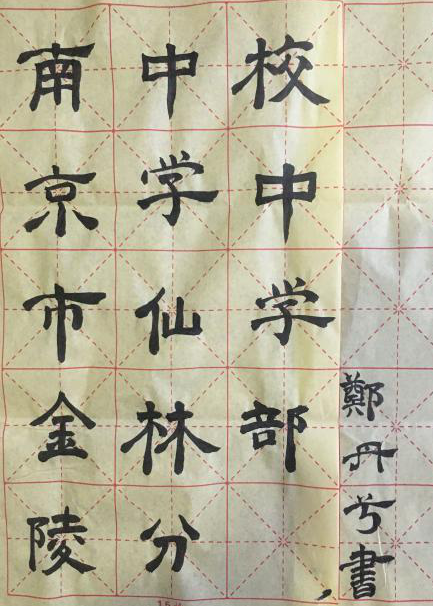 南京市金陵
中学仙林分
校中学部
鄭丹兮書